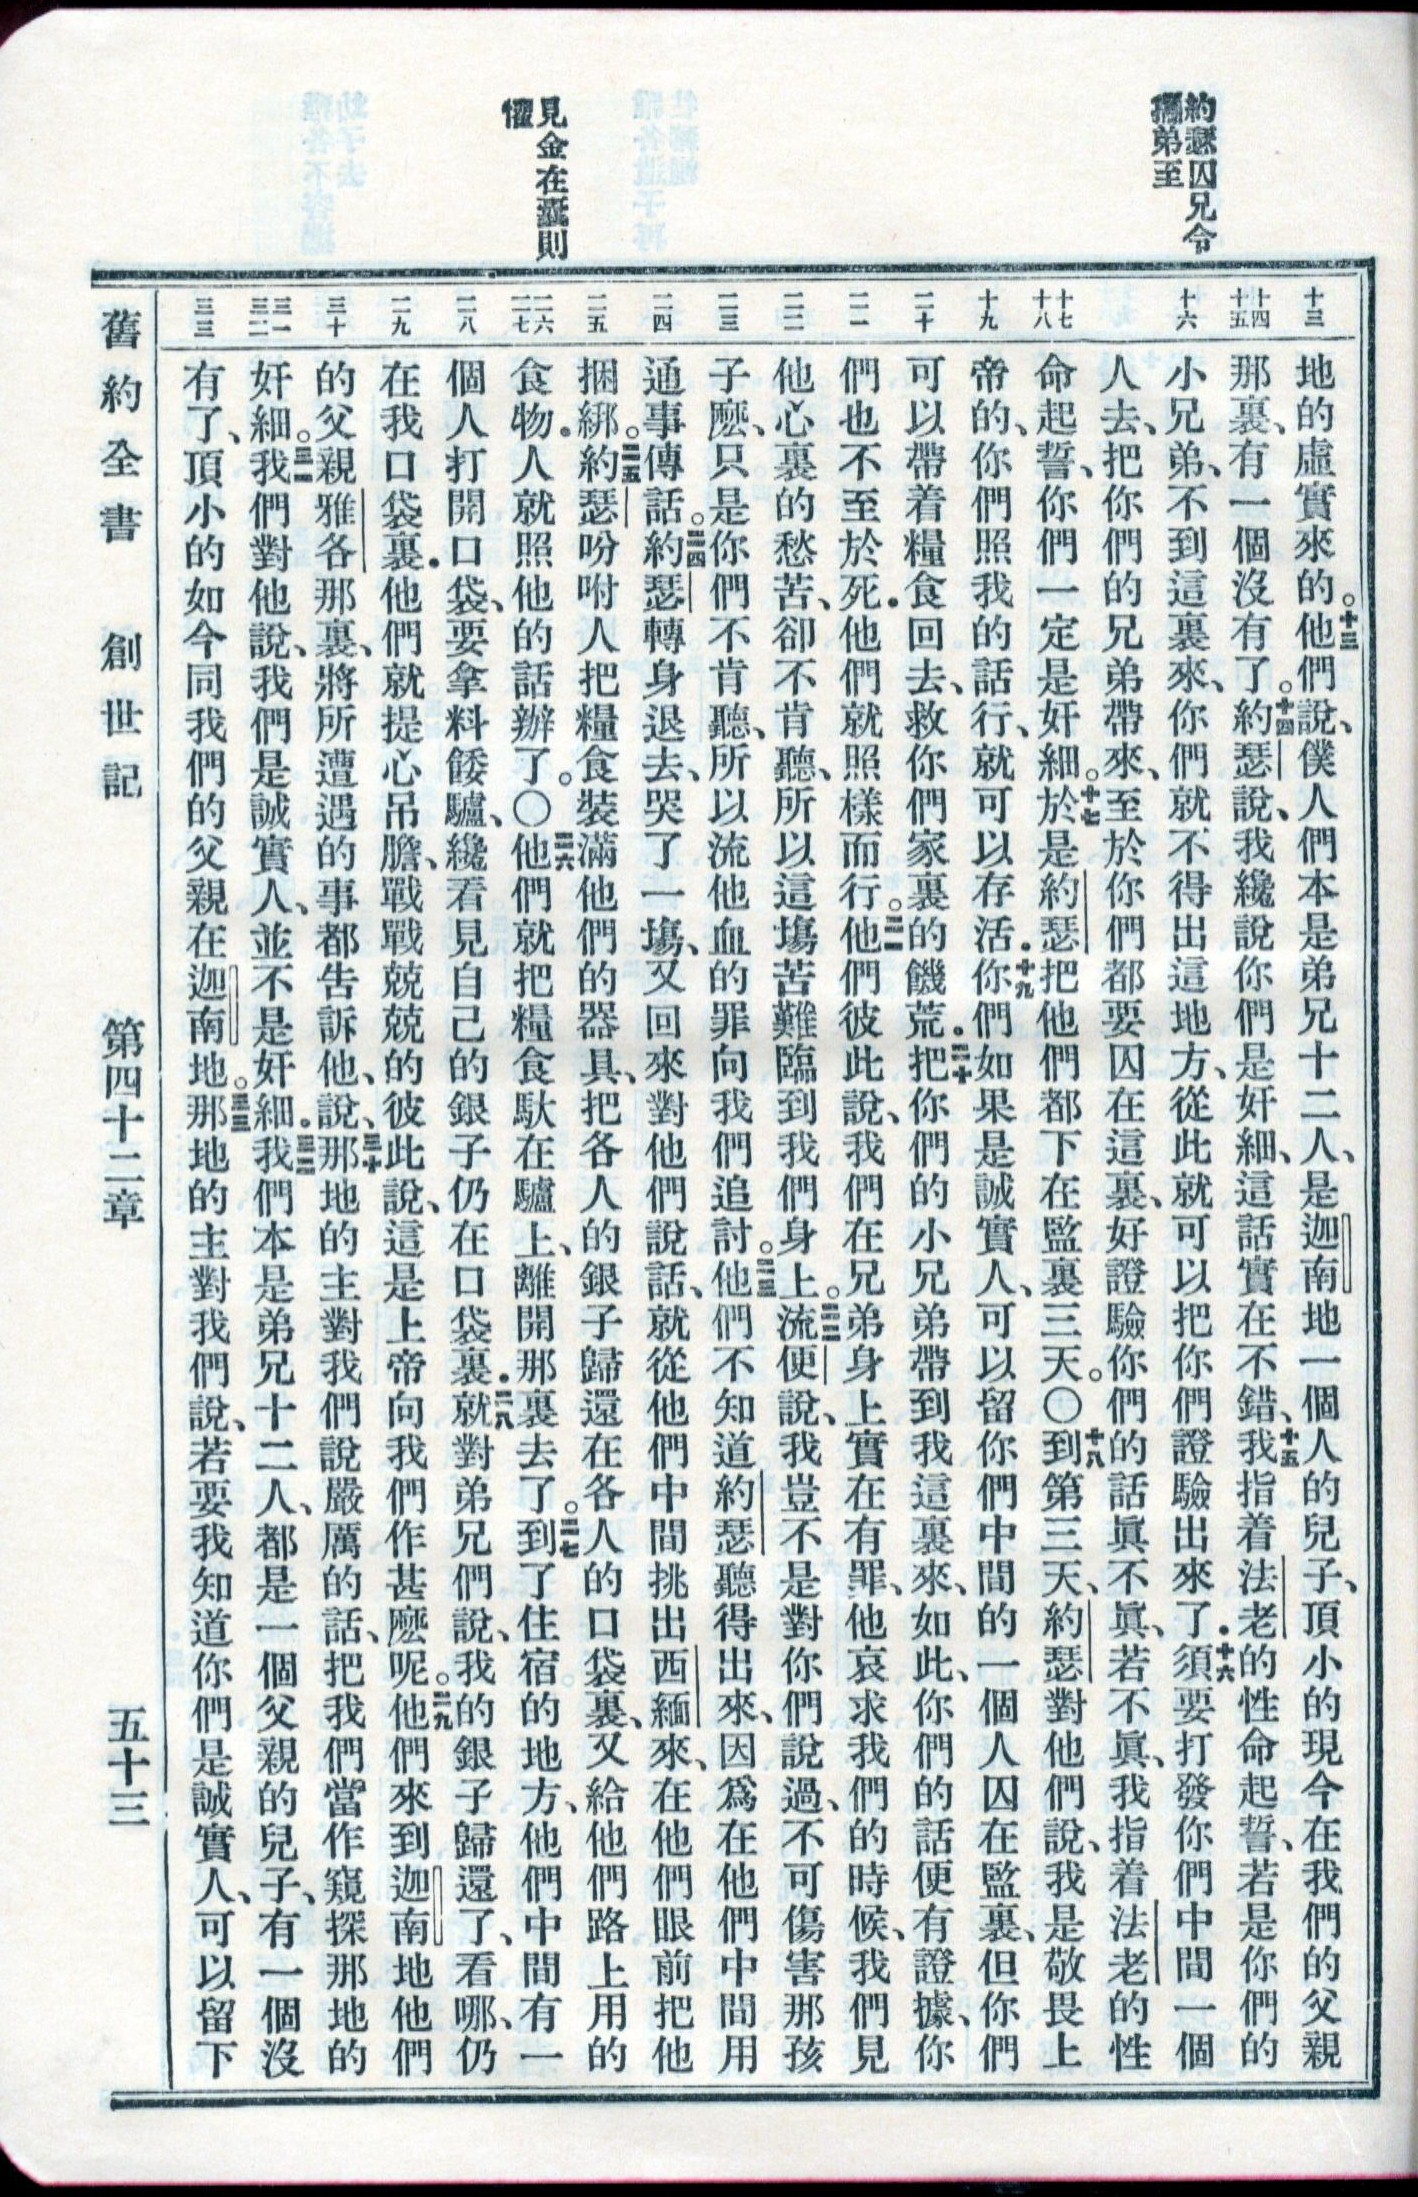 約瑟囚兄令
攜弟至
見金在囊則
懼
十三
十四
十五
十六
十七
十八
十九
二十
二一
二二
二三
二四
二五
二六
二七
二八
二九
三十
三一
三二
三三
地的虛實來的。十三他們說、僕人們本是弟兄十二人、是迦南地一個人的兒子、頂小的現今在我們的父親
那裏、有一個沒有了。十四約瑟說、我纔說你們是奸細、這話實在不錯、十五我指着法老的性命起誓、若是你們的
小兄弟、不到這裏來、你們就不得出這地方、從此就可以把你們證驗出來了．十六須要打發你們中間一個
人去、把你們的兄弟帶來、至於你們都要囚在這裏、好證驗你們的話眞不眞、若不眞、我指着法老的性
命起誓、你們一定是奸細。十七於是約瑟把他們都下在監裏三天。〇十八到第三天、約瑟對他們說、我是敬畏上
帝的、你們照我的話行、就可以存活．十九你們如果是誠實人、可以留你們中間的一個人囚在監裏、但你們
可以帶着糧食回去、救你們家裏的饑荒．二十把你們的小兄弟帶到我這裏來、如此、你們的話便有證據、你
們也不至於死．他們就照樣而行。二一他們彼此說、我們在兄弟身上實在有罪、他哀求我們的時候、我們見
他心裏的愁苦、卻不肯聽、所以這塲苦難臨到我們身上。二二流便說、我豈不是對你們說過、不可傷害那孩
子麼、只是你們不肯聽、所以流他血的罪向我們追討。二三他們不知道約瑟聽得出來、因爲在他們中間用
通事傳話。二四約瑟轉身退去、哭了一塲、又回來對他們說話、就從他們中間挑出西緬來、在他們眼前把他
捆綁。二五約瑟吩咐人把糧食裝滿他們的器具、把各人的銀子歸還在各人的口袋裏、又給他們路上用的
食物．人就照他的話辦了。〇二六他們就把糧食馱在驢上、離開那裏去了。二七到了住宿的地方、他們中間有一
個人打開口袋、要拿料餧驢、纔看見自己的銀子仍在口袋裏．二八就對弟兄們說、我的銀子歸還了、看哪、仍
在我口袋裏．他們就提心吊膽、戰戰兢兢的彼此說、這是上帝向我們作甚麼呢。二九他們來到迦南地他們
的父親雅各那裏、將所遭遇的事都告訴他、說、三十那地的主對我們說嚴厲的話、把我們當作窺探那地的
奸細。三一我們對他說、我們是誠實人、並不是奸細．三二我們本是弟兄十二人、都是一個父親的兒子、有一個沒
有了、頂小的如今同我們的父親在迦南地。三三那地的主對我們說、若要我知道你們是誠實人、可以留下
舊約全書 創世記 第四十二章 五十三